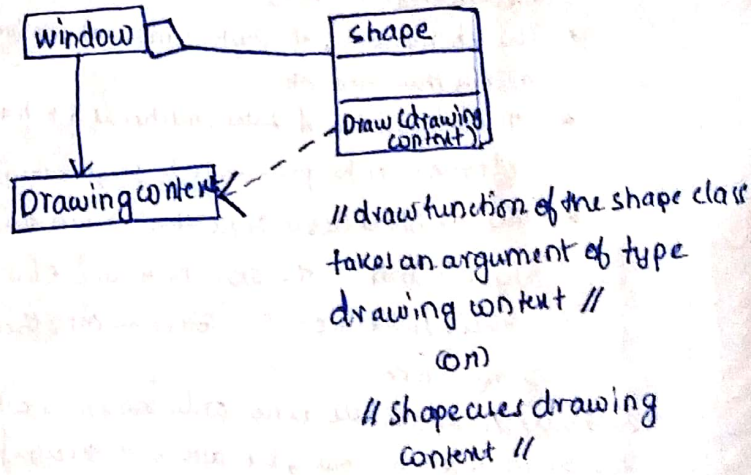 window
shape
Draw (drawing
context)
Drawing context
// draw function of the shape class
takes an argument of type
drawing context //
(or)
// Shape uses drawing
context //